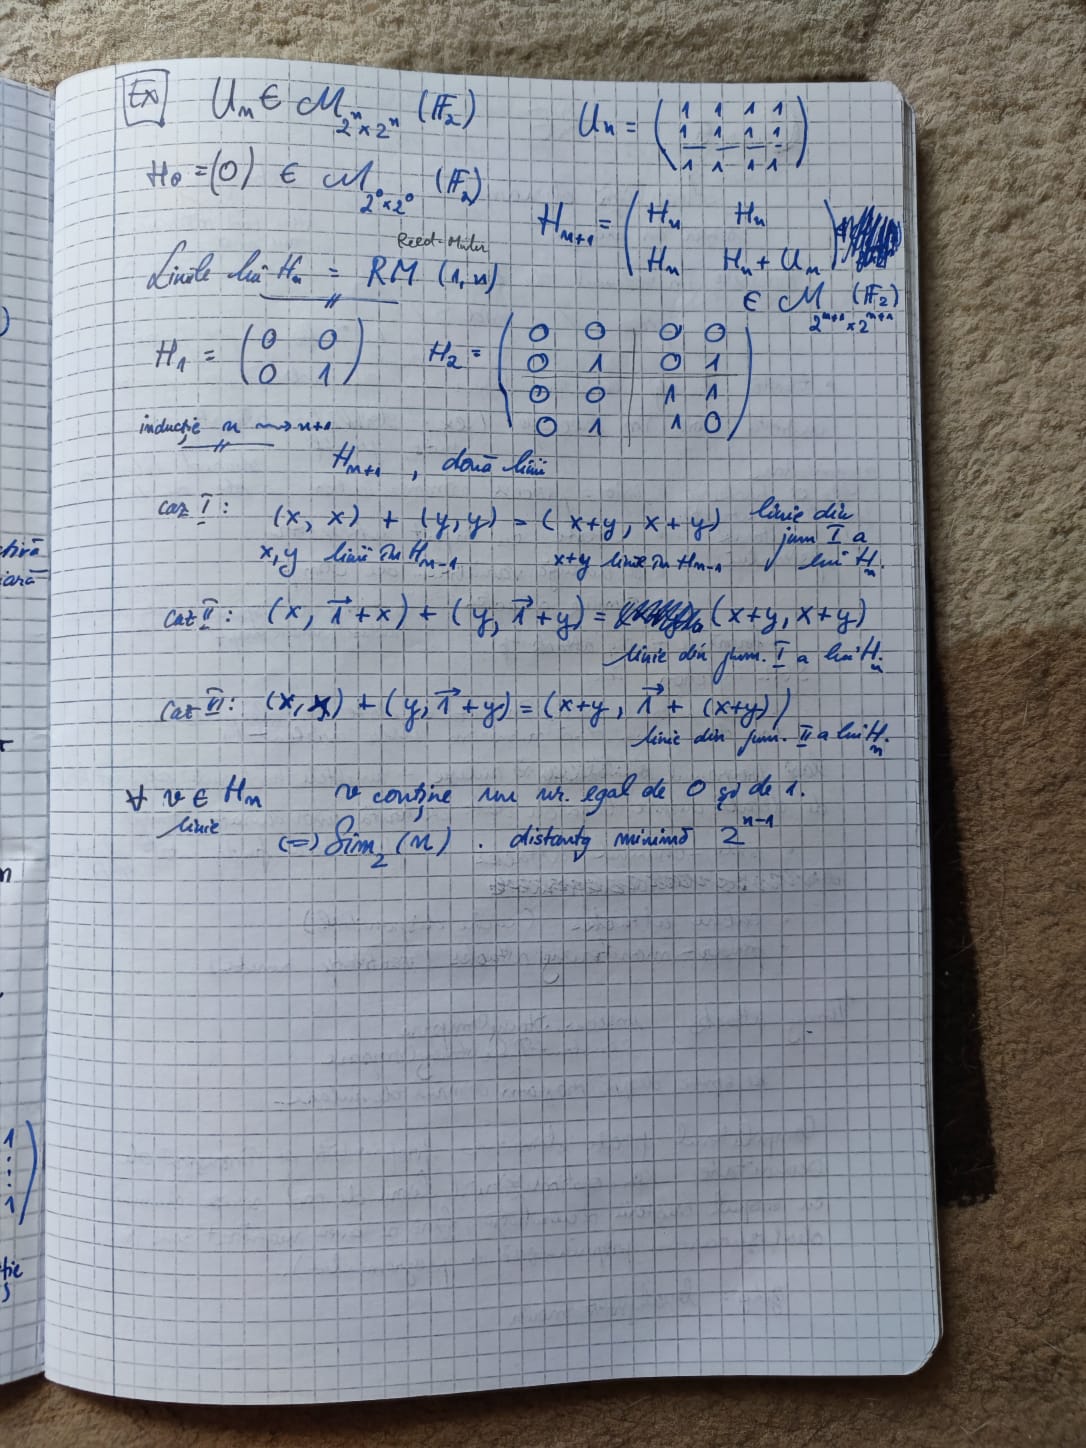 Ex Uₙ ∈ M₂ⁿₓ₂ⁿ (F₂) Uₙ = ( 1 1 1 1
1 1 1 1
1 1 1 1 )
H₀ = (0) ∈ M₂⁰ₓ₂⁰ (F₂)
Hₙ₊₁ = ( Hₙ Hₙ
Hₙ Hₙ + Uₙ )
∈ M₂ⁿ⁺¹ₓ₂ⁿ⁺¹ (F₂)
Reed-Muller
Liniile lui Hₙ = RM (1, n)
H₁ = ( 0 0
0 1 )
H₂ = ( 0 0 | 0 0
0 1 | 0 1
0 0 | 1 1
0 1 | 1 0 )
inducție n ⇝ n+1
Hₙ₊₁, două linii
caz I: (x, x) + (y, y) = (x+y, x+y) linie din
jum I a
lui Hₙ.
x, y linii în Hₙ₋₁ x+y linie în Hₙ₋₁
caz II: (x, 1⃗+x) + (y, 1⃗+y) = (x+y, x+y)
linie din jum. I a lui Hₙ.
caz III: (x, x) + (y, 1⃗+y) = (x+y, 1⃗ + (x+y))
linie din jum. II a lui Hₙ.
∀ v ∈ Hₙ v conține un nr. egal de 0 și de 1.
linie
(=) Sim₂ (n). distanță minimă 2ⁿ⁻¹